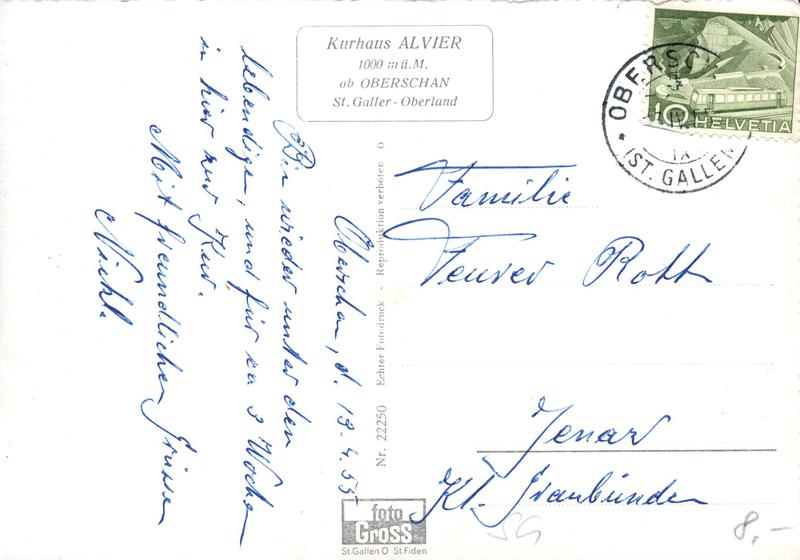 Kurhaus ALVIER
1000 m ü. M.
ob OBERSCHAN
St. Galler - Oberland
HELVETIA
10
(ST. GALLEN)
Oberschan, d. 19. 4. 55
Bin wieder unter den
lebendigen, und für ca 3 Wochen
in hier zur Kur.
Mit freundlichen Grüssen
Nr. 22250 Echter Fotodruck - Reproduktion verboten O
Familie
Roth
Jenaz
Kt. Graubünden
foto
Gross
St.Gallen O St.Fiden
SG
8.-